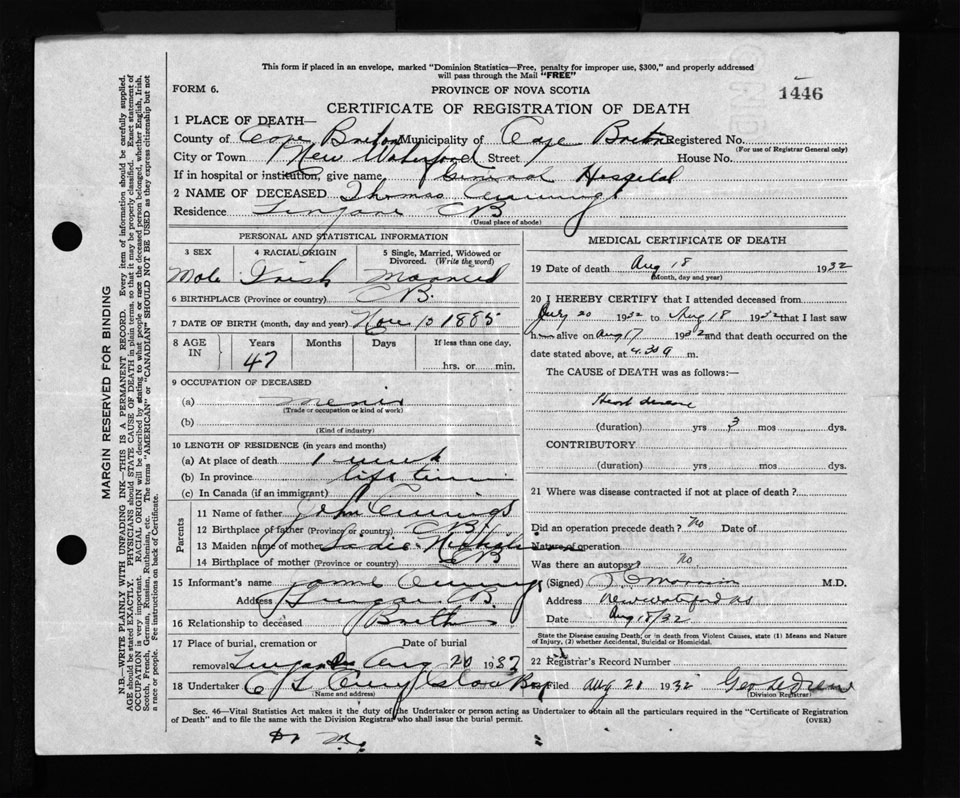 This form if placed in an envelope, marked "Dominion Statistics—Free, penalty for improper use, $300," and properly addressed
will pass through the Mail "FREE"
FORM 6.
PROVINCE OF NOVA SCOTIA
1446
CERTIFICATE OF REGISTRATION OF DEATH
MARGIN RESERVED FOR BINDING
N.B.—WRITE PLAINLY WITH UNFADING INK—THIS IS A PERMANENT RECORD. Every item of information should be carefully supplied.
AGE should be stated EXACTLY. PHYSICIANS should STATE CAUSE OF DEATH in plain terms, so that it may be properly classified. Exact statement of
OCCUPATION is very important. RACIAL ORIGIN will be described by stating to what people or race the deceased person belonged, whether English, Irish,
Scotch, French, German, Russian, Ruthenian, etc. The terms "AMERICAN" or "CANADIAN" SHOULD NOT BE USED as they express citizenship but not
a race or people. Fee instructions on back of Certificate.
1 PLACE OF DEATH—
County of Cape Breton Municipality of Cape Breton Registered No.
(For use of Registrar General only)
City or Town New Waterford Street House No.
If in hospital or institution, give name, General Hospital
2 NAME OF DECEASED Thomas
Residence Lingan CB
(Usual place of abode)
PERSONAL AND STATISTICAL INFORMATION
3 SEX 4 RACIAL ORIGIN 5 Single, Married, Widowed or
Divorced. (Write the word)
Male Irish Married
6 BIRTHPLACE (Province or country) CB.
7 DATE OF BIRTH (month, day and year) Nov 1885
8 AGE IN Years Months Days If less than one day.
47 hrs. or min.
9 OCCUPATION OF DECEASED
(a)
(Trade or occupation or kind of work)
(b)
(Kind of industry)
10 LENGTH OF RESIDENCE (in years and months)
(a) At place of death 1
(b) In province life time
(c) In Canada (if an immigrant)
Parents
11 Name of father John
12 Birthplace of father (Province or country) CB
13 Maiden name of mother
14 Birthplace of mother (Province or country) CB
15 Informant's name
Address Lingan CB.
16 Relationship to deceased Brother
17 Place of burial, cremation or Date of burial
removal Lingan Aug 20 1932
18 Undertaker
(Name and address)
MEDICAL CERTIFICATE OF DEATH
19 Date of death Aug 18 1932
(Month, day and year)
20 I HEREBY CERTIFY that I attended deceased from
July 20 1932 to Aug 18 1932 that I last saw
h alive on Aug 17 1932 and that death occurred on the
date stated above, at m.
The CAUSE of DEATH was as follows:—
Heart disease
(duration) yrs 3 mos dys.
CONTRIBUTORY
(duration) yrs mos dys.
21 Where was disease contracted if not at place of death?
Did an operation precede death? No Date of
Nature of operation
Was there an autopsy? No
(Signed) M.D.
Address New Waterford NS
Date Aug 18/32
State the Disease causing Death, or in death from Violent Causes, state (1) Means and Nature
of Injury, (2) whether Accidental, Suicidal or Homicidal.
22 Registrar's Record Number
Filed Aug 21 1932
(Division Registrar)
Sec. 46—Vital Statistics Act makes it the duty of the Undertaker or person acting as Undertaker to obtain all the particulars required in the "Certificate of Registration
of Death" and to file the same with the Division Registrar who shall issue the burial permit.
(OVER)